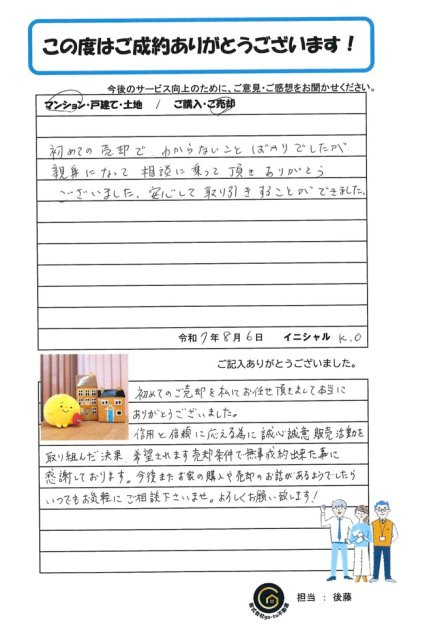 この度はご成約ありがとうございます！
今後のサービス向上のために、ご意見・ご感想をお聞かせください。
マンション・戸建て・土地 / ご購入・ご売却
初めての売却で わからないこと ばかりでしたが
親身になって 相談に乗って 頂き ありがとう
ございました。安心して 取り引き することが できました。
令和 7年 8月 6日 イニシャル K.O
ご記入ありがとうございました。
初めてのご売却を私にお任せ頂きまして本当に
ありがとうございました。
信用と信頼に応える為に誠心誠意 販売活動を
取り組んだ決果 希望されます売却条件で無事成約出来た事に
感謝しております。今後またお家の購入や売却のお話があるようでしたら
いつでもお気軽にご相談下さいませ。よろしくお願い致します！
株式会社go-to不動産
担当 : 後藤